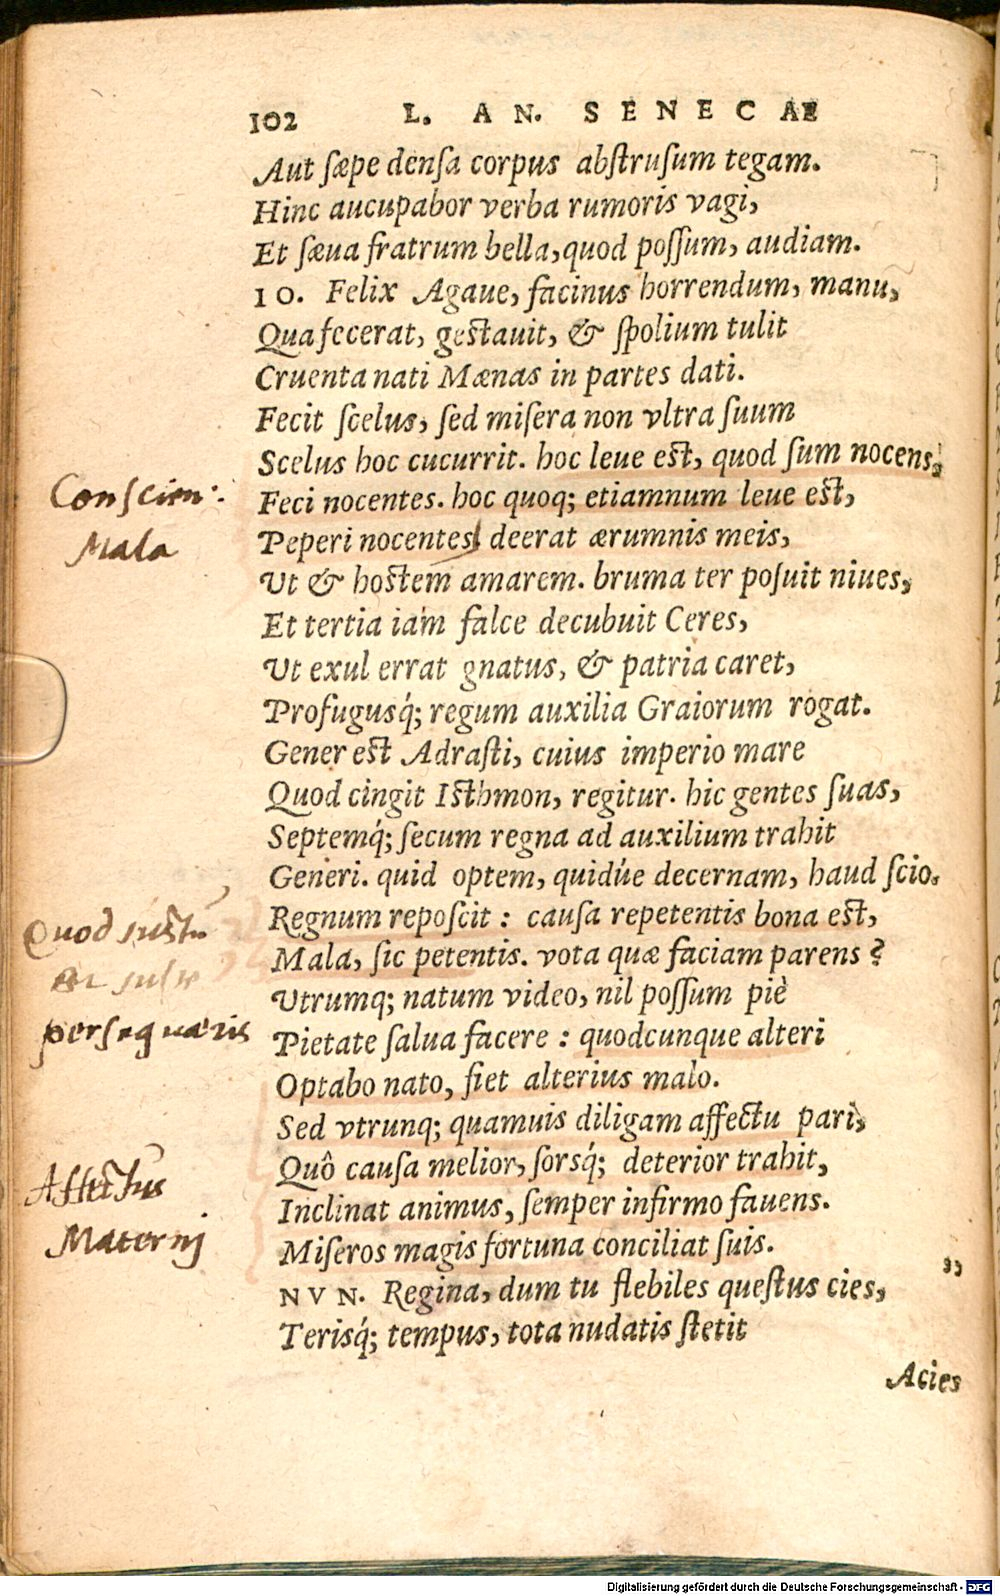 102 L. AN. SENECAE
Aut sæpe densa corpus abstrusum tegam.
Hinc aucupabor verba rumoris vagi,
Et sæua fratrum bella, quod possum, audiam.
IO. Felix Agaue, facinus horrendum, manu,
Qua fecerat, gestauit, & spolium tulit
Cruenta nati Mænas in partes dati.
Fecit scelus, sed misera non vltra suum
Scelus hoc cucurrit. hoc leue est, quod sum nocens,
Conscien:
Feci nocentes. hoc quoq; etiamnum leue est,
Mala
Peperi nocentes. deerat ærumnis meis,
Ut & hostem amarem. bruma ter posuit niues,
Et tertia iám falce decubuit Ceres,
Ut exul errat gnatus, & patria caret,
Profugusq́; regum auxilia Graiorum rogat.
Gener est Adrasti, cuius imperio mare
Quod cingit Isthmon, regitur. hic gentes suas,
Septemq́; secum regna ad auxilium trahit
Generi. quid optem, quidúe decernam, haud scio.
Quod iustu
Regnum reposcit: causa repetentis bona est,
Mala, sic petentis. vota quæ faciam parens?
Utrumq; natum video, nil possum piè
persequæris
Pietate salua facere: quodcunque alteri
Optabo nato, fiet alterius malo.
Sed vtrunq; quamuis diligam affectu pari,
Quô causa melior, sorsq́; deterior trahit,
Affectus
Inclinat animus, semper infirmo fauens.
Maternj
Miseros magis fortuna conciliat suis. ,,
NVN. Regina, dum tu flebiles questus cies,
Terisq́; tempus, tota nudatis stetit
Acies
Digitalisierung gefördert durch die Deutsche Forschungsgemeinschaft - DFG